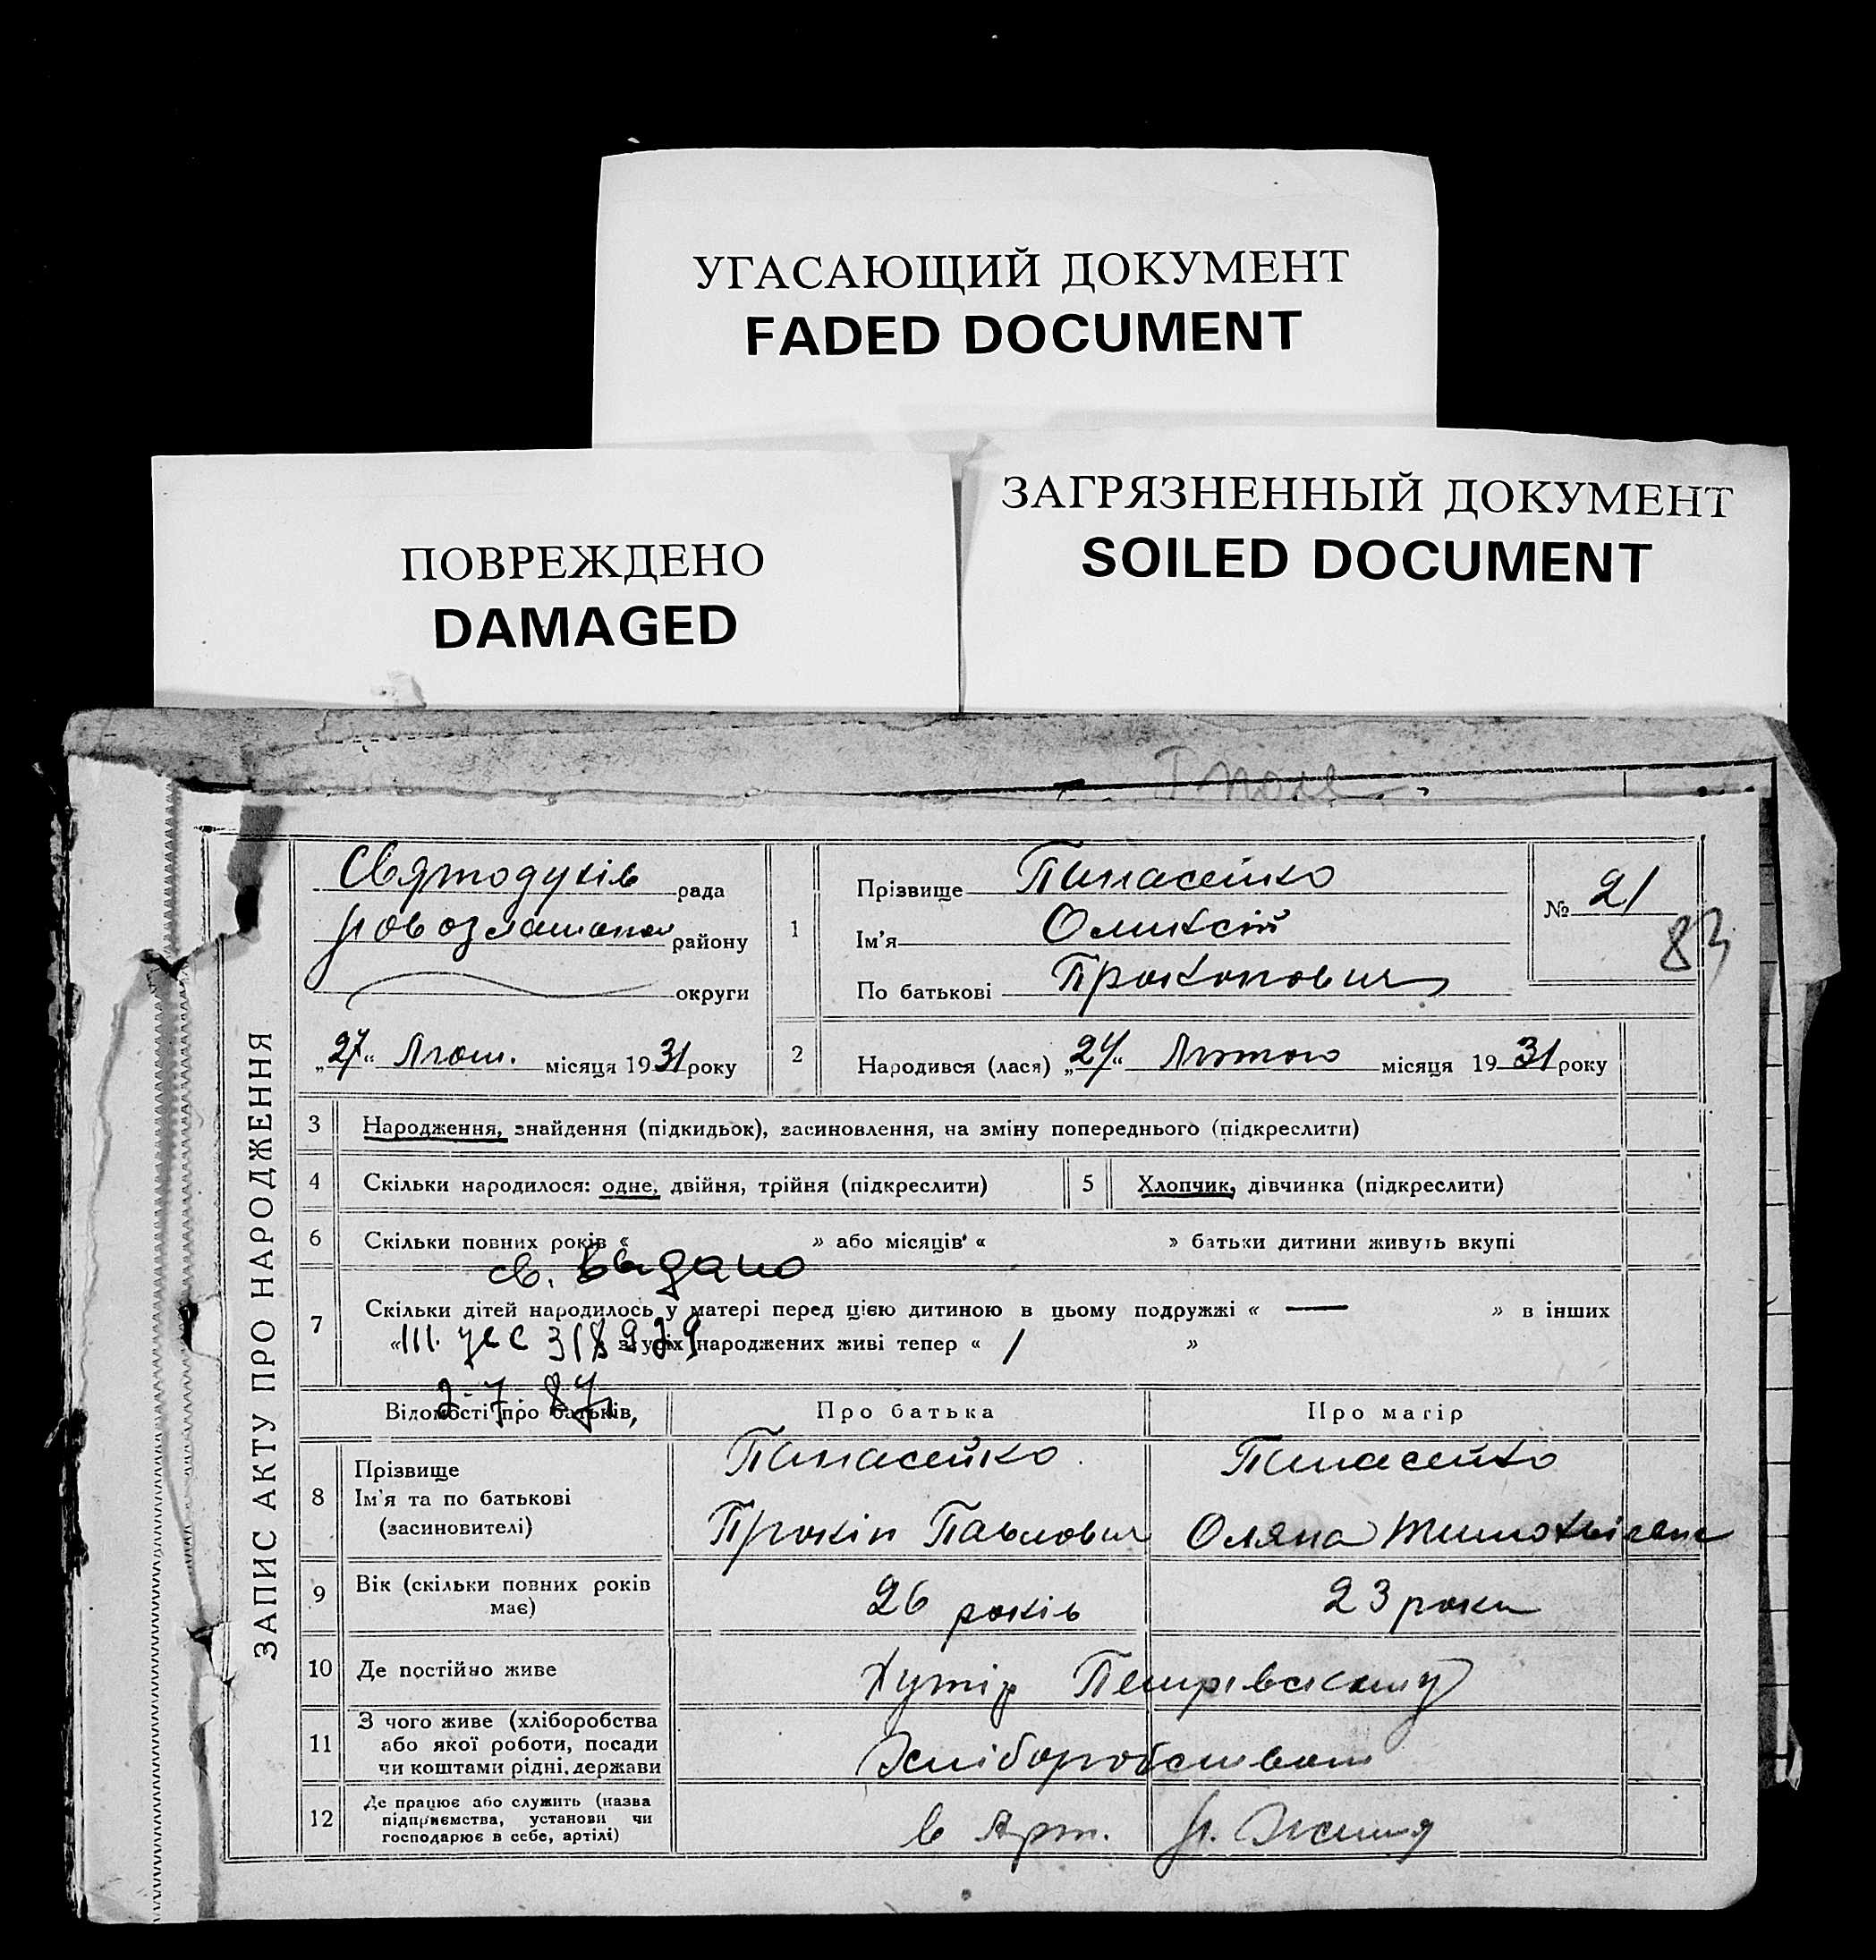 УГАСАЮЩИЙ ДОКУМЕНТ
FADED DOCUMENT
ПОВРЕЖДЕНО
DAMAGED
ЗАГРЯЗНЕННЫЙ ДОКУМЕНТ
SOILED DOCUMENT
ЗАПИС АКТУ ПРО НАРОДЖЕННЯ
Святодухів рада
району
округи
„27“ Лют. місяця 1931 року
1
Прізвище Панасенко
Ім'я Олексій
По батькові Прокопович
№ 21
83
2
Народився (лася) „24“ Лютого місяця 1931 року
3 Народження, знайдення (підкидьок), засиновлення, на зміну попереднього (підкреслити)
4 Скільки народилося: одне, двійня, трійня (підкреслити)
5 Хлопчик, дівчинка (підкреслити)
6 Скільки повних років « » або місяців « » батьки дитини живуть вкупі
св. выдано
7 Скільки дітей народилось у матері перед цією дитиною в цьому подружжі « — » в інших
« з усіх народжених живі тепер « 1 »
Відомості про батьків,
Про батька
Про матір
8 Прізвище
Ім'я та по батькові
(засиновителі)
Панасенко
Прокіп Павлович
Панасенко
Оляна
9 Вік (скільки повних років
має)
26 років
23 роки
10 Де постійно живе
Хутір
11 З чого живе (хліборобства
або якої роботи, посади
чи коштами рідні, держави
Хліборобством
12 Де працює або служить (назва
підприємства, установи чи
господарює в себе, артілі)
в Арт.